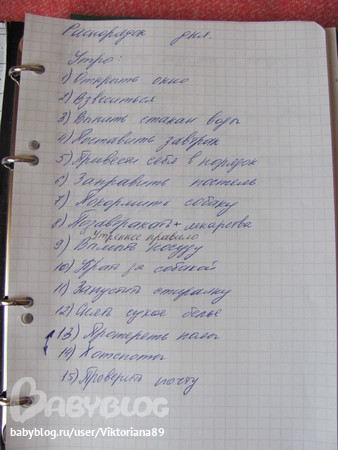 Распорядок дня.
Утро:
1) Открыть окно
2) Взвеситься
3) Выпить стакан воды
4) Поставить завтрак
5) Привести себя в порядок
6) Заправить постель
7) Покормить собаку
8) Позавтракать + лекарства
Утреннее правило
9) Вымыть посуду
10) Убрать за собакой
11) Запустить стиралку
12) сухое белье
13) Протереть полы
14) Хотспоты
15) Проверить почту
BABYBLOG
babyblog.ru/user/Viktoriana89